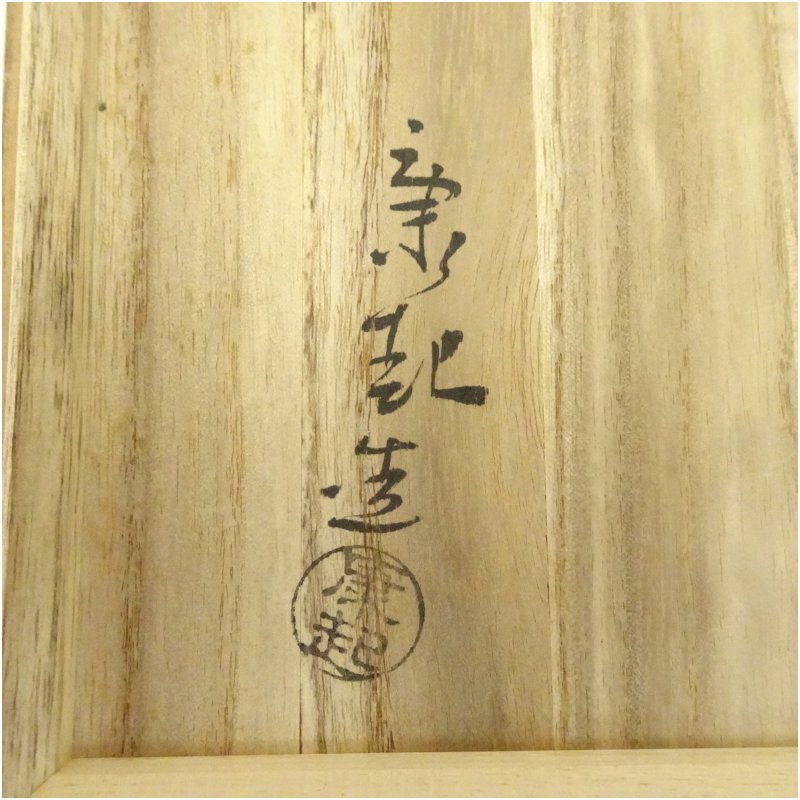 康起造
康起